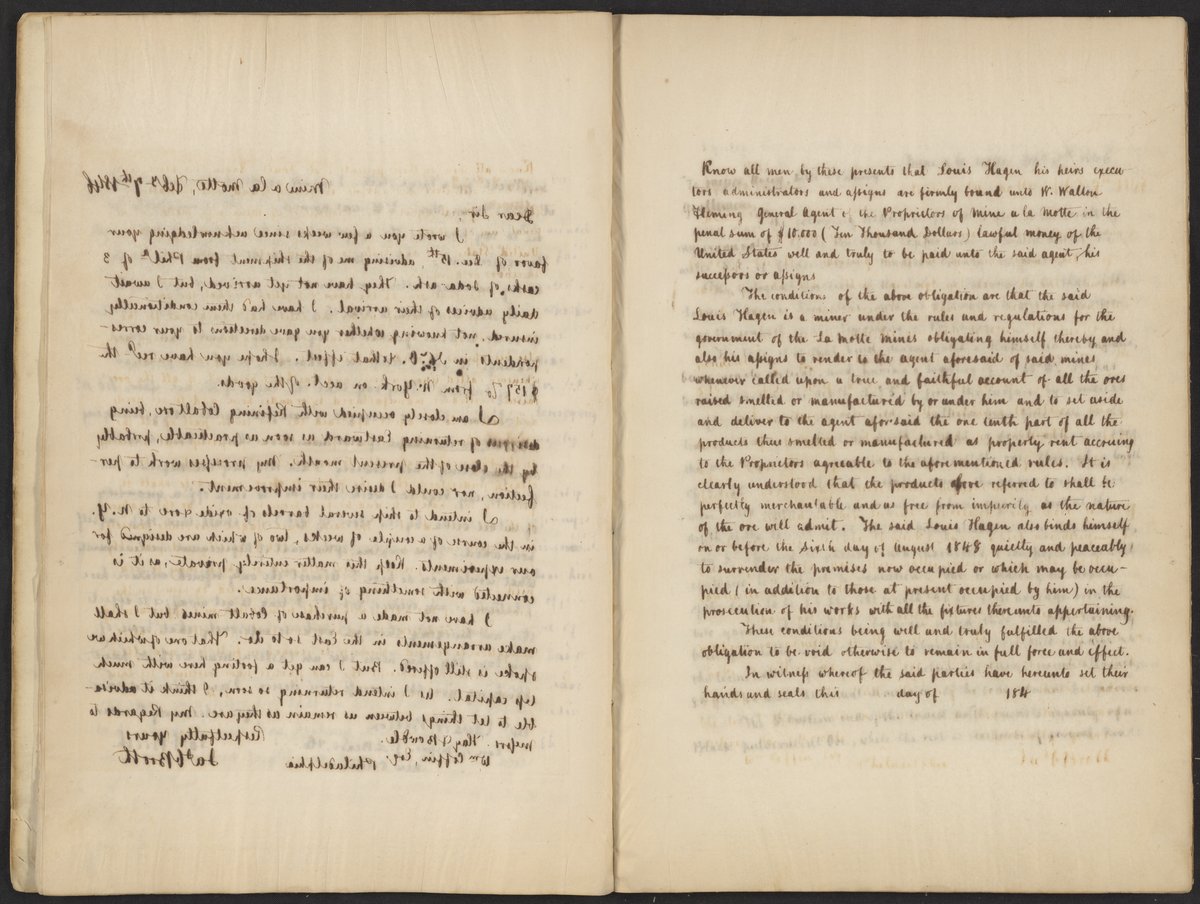 Mine a la Motte, Feb. 7th 1846
Dear Sir,
I wrote you a few weeks since acknowledging your
favor of Dec. 13th, advising me of the shipment from Phila of 3
casks of Soda ash. They have not yet arrived, but I await
daily advices of their arrival. I have had them conditionally
insured, not knowing whether you gave directions to your corres-
pondents in to that effect. I hope you have recd the
from N. York on acct. of the goods.
I am closely occupied with Refining Cobalt ore, being
of returning Eastward as soon as practicable, probably
by the close of the present month. My processes work to per-
fection, nor could I desire their improvement.
I intend to ship several barrels of oxide & ore to N.Y.
in the course of a couple of weeks, two of which are designed for
our experiments. Keep this matter entirely private, as it is
connected with something of importance.
I have not made a purchase of Cobalt mines but I shall
make arrangements in the East to do so. That one of which we
spoke is still offered. But I can get a footing here with much
less capital. As I intend returning so soon, I think it advisa-
ble to let things between us remain as they are. My Regards to
messrs. Hay & Bowdle. Respectfully Yours
Wm Coffin, Esq Jas Booth
Philadelphia
Know all men by these presents that Louis Hagen his heirs execu
tors administrators and assigns are firmly bound unto W. Walton
Fleming General Agent of the Proprietors of Mine a la Motte in the
penal sum of $10,000 (Ten Thousand Dollars) lawful money of the
United States well and truly to be paid unto the said agent, his
successors or assigns
The conditions of the above obligation are that the said
Louis Hagen is a miner under the rules and regulations for the
government of the La Motte Mines obligating himself thereby and
also his assigns to render to the agent aforesaid of said mines
whenever called upon a true and faithful account of all the ores
raised smelted or manufactured by or under him and to set aside
and deliver to the agent aforesaid the one tenth part of all the
products thus smelted or manufactured as property rent accruing
to the Proprietors agreeable to the aforementioned rules. It is
clearly understood that the products above referred to shall be
perfectly merchantable and as free from impurity as the nature
of the ore will admit. The said Louis Hagen also binds himself
on or before the Sixth day of August 1848 quietly and peaceably
to surrender the premises now occupied or which may be occu-
pied (in addition to those at present occupied by him) in the
prosecution of his works with all the fixtures thereunto appertaining.
These conditions being well and truly fulfilled the above
obligation to be void otherwise to remain in full force and effect.
In witness whereof the said parties have hereunto set their
hands and seals this day of 184